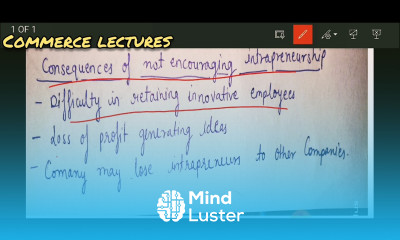 1 OF 1
COMMERCE LECTURES
Consequences of not encouraging intrapreneurship
- Difficulty in retaining innovative employees
- Loss of profit generating ideas
- Comany may lose intrapreneurs to other Companies.
Mind
Luster